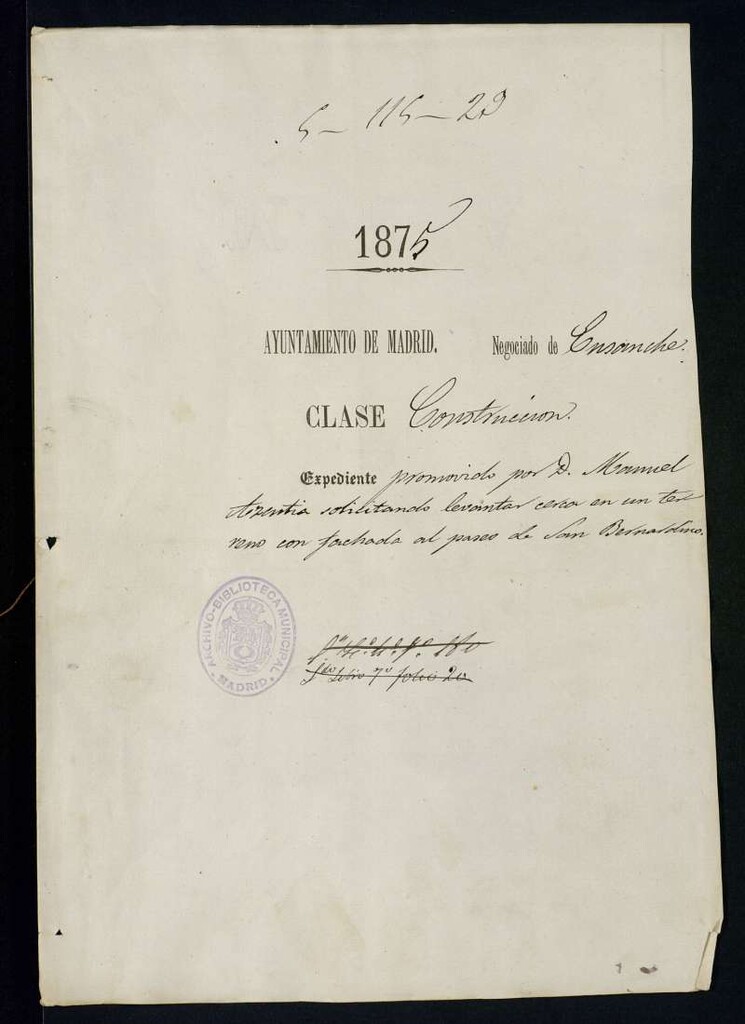 5-115-29
1875
AYUNTAMIENTO DE MADRID. Negociado de Ensanche.
CLASE Construccion.
Expediente promovido por D. Manuel
solicitando levantar cerca en un ter-
reno con fachada al paseo de San Bernardino.
ARCHIVO-BIBLIOTECA MUNICIPAL
MADRID
folio 20